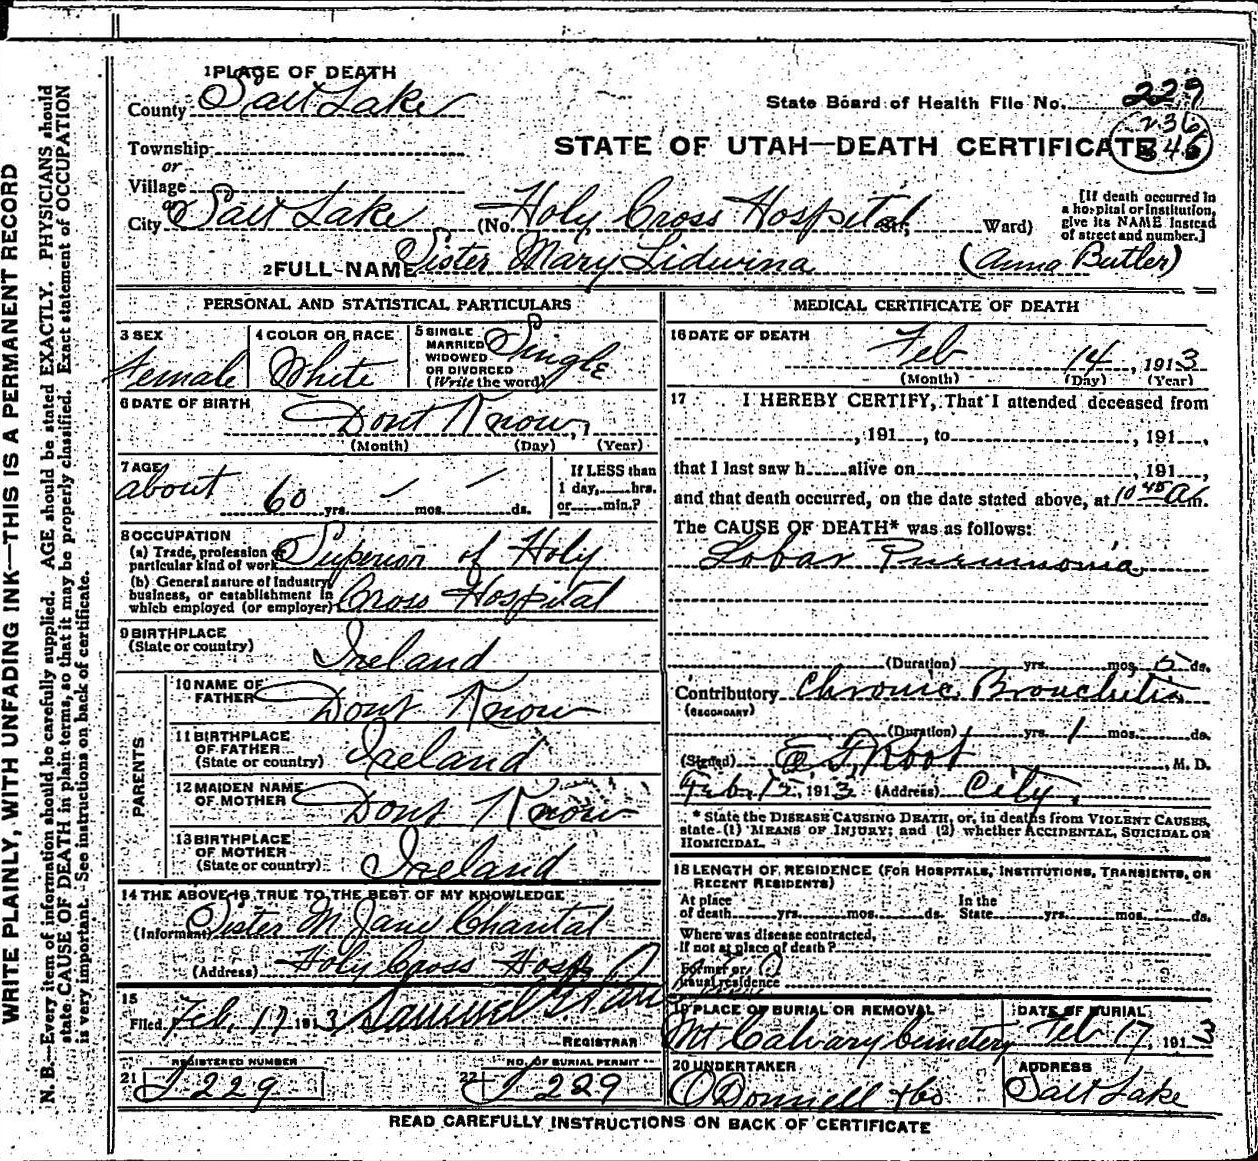 WRITE PLAINLY, WITH UNFADING INK—THIS IS A PERMANENT RECORD
N. B.—Every item of information should be carefully supplied. AGE should be stated EXACTLY. PHYSICIANS should
state CAUSE OF DEATH in plain terms, so that it may be properly classified. Exact statement of OCCUPATION
is very important. See instructions on back of certificate.
1 PLACE OF DEATH
County Salt Lake
Township
or
Village
or
City Salt Lake (No. Holy Cross Hospital St., Ward)
State Board of Health File No. 229
236
STATE OF UTAH—DEATH CERTIFICATE
[If death occurred in
a hospital or institution,
give its NAME instead
of street and number.]
2 FULL NAME Sister Mary Lidwina (Anna Butler)
PERSONAL AND STATISTICAL PARTICULARS
3 SEX Female
4 COLOR OR RACE White
5 SINGLE
MARRIED
WIDOWED
OR DIVORCED
(Write the word) Single
6 DATE OF BIRTH
Dont Know
(Month) (Day) (Year)
7 AGE
about 60 yrs. — mos. — ds.
If LESS than
1 day, hrs.
or min.?
8 OCCUPATION
(a) Trade, profession or
particular kind of work Superior of Holy
(b) General nature of Industry,
business, or establishment in
which employed (or employer) Cross Hospital
9 BIRTHPLACE
(State or country) Ireland
PARENTS
10 NAME OF
FATHER Dont Know
11 BIRTHPLACE
OF FATHER
(State or country) Ireland
12 MAIDEN NAME
OF MOTHER Dont Know
13 BIRTHPLACE
OF MOTHER
(State or country) Ireland
14 THE ABOVE IS TRUE TO THE BEST OF MY KNOWLEDGE
(Informant) Sister M Jane Chantal
(Address) Holy Cross Hosp
15
Filed Feb. 17 1913 Samuel G. Paul
REGISTRAR
REGISTERED NUMBER
21 J 229
NO. OF BURIAL PERMIT
22 J 229
MEDICAL CERTIFICATE OF DEATH
16 DATE OF DEATH
Feb 14, 1913
(Month) (Day) (Year)
17 I HEREBY CERTIFY, That I attended deceased from
, 191 , to , 191 ,
that I last saw h alive on , 191 ,
and that death occurred, on the date stated above, at 10 45 A m.
The CAUSE OF DEATH* was as follows:
Lobar Pneumonia
(Duration) yrs. mos. 5 ds.
Contributory Chronic Bronchitis
(SECONDARY)
(Duration) yrs. 1 mos. ds.
(Signed) E F Root, M. D.
Feb. 15, 1913 (Address) City.
* State the DISEASE CAUSING DEATH, or, in deaths from VIOLENT CAUSES,
state (1) MEANS OF INJURY; and (2) whether ACCIDENTAL, SUICIDAL OR
HOMICIDAL.
18 LENGTH OF RESIDENCE (FOR HOSPITALS, INSTITUTIONS, TRANSIENTS, OR
RECENT RESIDENTS)
At place
of death yrs. mos. ds. In the
State yrs. mos. ds.
Where was disease contracted,
If not at place of death?
Former or
usual residence
19 PLACE OF BURIAL OR REMOVAL
Mt Calvary Cemetery
DATE OF BURIAL
Feb 17, 1913
20 UNDERTAKER
O'Donnell & Co
ADDRESS
Salt Lake
READ CAREFULLY INSTRUCTIONS ON BACK OF CERTIFICATE